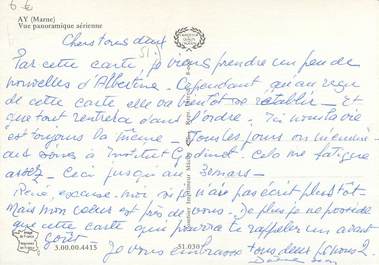 6 €
AY (Marne)
Vue panoramique aérienne
Chers tous deux
Par cette carte, je viens prendre un peu de
nouvelles d'Albertine. Cependant, qu'au reçu
de cette carte elle va bientôt se rétablir - Et
que tout rentrera dans l'ordre. Ici notre vie
est toujours la même - Tous les jours on m'emmène
aux soins à Institut Godinot. Cela me fatigue
assez - Ceci jusqu'au 3 mars -
René, excuse-moi si je n'ai pas écrit plus tôt
Mais mon cœur est près de vous. Je plus je ne possède
que cette carte qui pourra te rappeler un avant
goût - Je vous embrasse tous deux de nous 2
3.00.00.4413
51.030